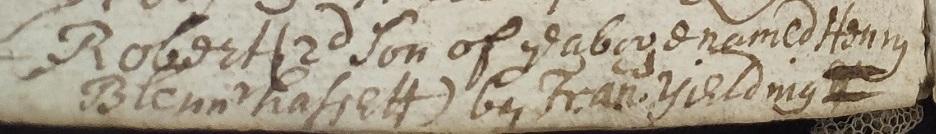 Robert (2d Son of ye above named Henry
Blennrhassett) by Frans Yielding